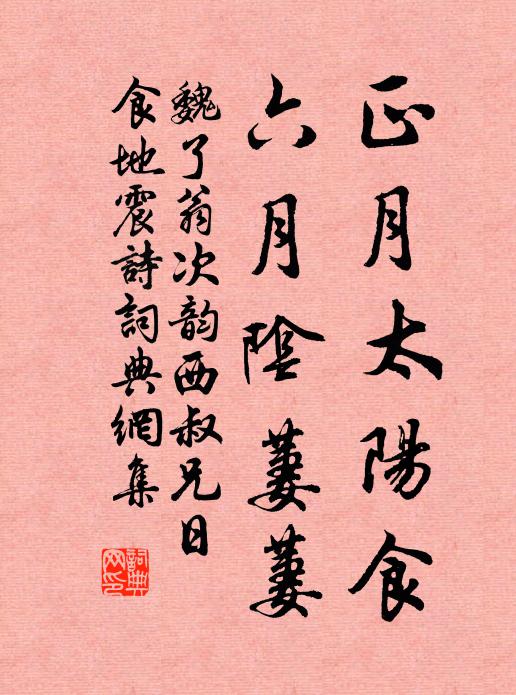 正月太陽食
六月陰蔞蔞
魏了翁次韵西叔兄日
食地震詩詞典網集
詞典
网印